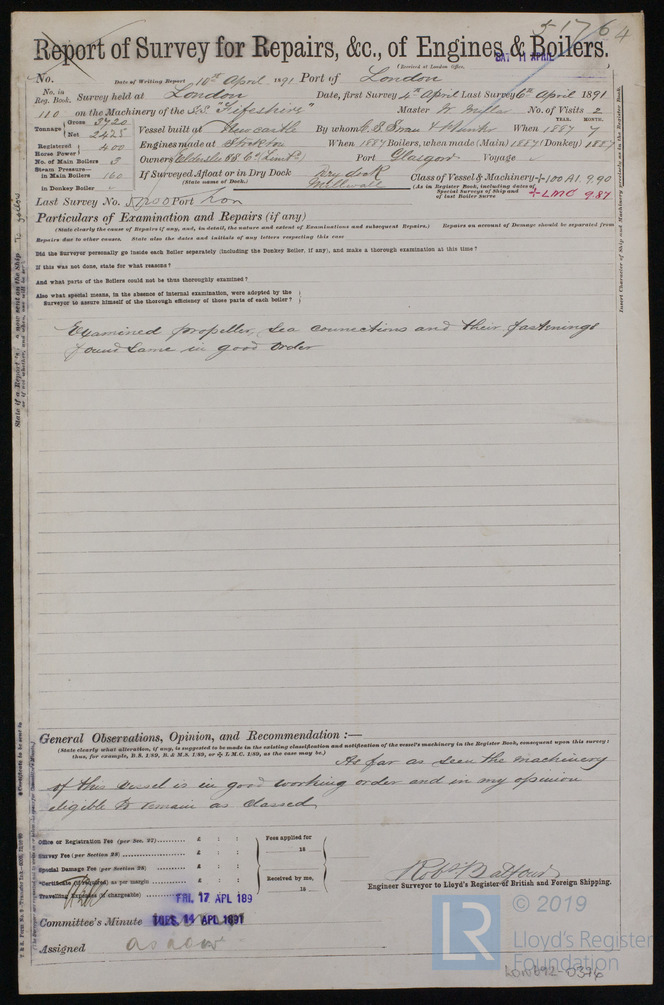 51764
Report of Survey for Repairs, &c., of Engines & Boilers.
(Received at London Office, SAT 11 APRIL
No. Date of Writing Report 10th April 1891 Port of London
No. in Reg. Book. Survey held at London Date, first Survey 4th April Last Survey 6th April 1891
110 on the Machinery of the S.S. "Fifeshire" Master W. Miller No. of Visits 2
Tonnage Gross 3720 Net 2425
Vessel built at Newcastle By whom C. S. Swan & Hunter When YEAR. 1887 MONTH. 7
Registered Horse Power 400 Engines made at Stockton When 1887 Boilers, when made (Main) 1887 (Donkey) 1887
No. of Main Boilers 3 Owners Elderslie SS Co (Limtd) Port Glasgow Voyage
Steam Pressure— in Main Boilers 160 If Surveyed Afloat or in Dry Dock Dry dock
(State name of Dock.) Millwall
Class of Vessel & Machinery +100 A1. 9.90
(As in Register Book, including dates of Special Surveys of Ship and of last Boiler Survey +LMC 9.87
in Donkey Boiler
Last Survey No. Port Lon
Particulars of Examination and Repairs (if any)
(State clearly the cause of Repairs if any, and, in detail, the nature and extent of Examinations and subsequent Repairs.) Repairs on account of Damage should be separated from
Repairs due to other causes. State also the dates and initials of any letters respecting this case
Did the Surveyor personally go inside each Boiler separately (including the Donkey Boiler, if any), and make a thorough examination at this time?
If this was not done, state for what reasons?
And what parts of the Boilers could not be thus thoroughly examined?
Also what special means, in the absence of internal examination, were adopted by the
Surveyor to assure himself of the thorough efficiency of those parts of each boiler?
Examined propeller, sea connections and their fastenings
found same in good order
General Observations, Opinion, and Recommendation :—
(State clearly what alteration, if any, is suggested to be made in the existing classification and notification of the vessel's machinery in the Register Book, consequent upon this survey;
thus, for example, B.S. 1/89, B. & M.S. 1/89, or + L.M.C. 1/89, as the case may be.)
As far as seen the machinery
of this vessel is in good working order and in my opinion
eligible to remain as classed
Office or Registration Fee (per Sec. 27) £ : :
Survey Fee (per Section 28) £ : :
Special Damage Fee (per Section 28) £ : :
Certificate (if required) as per margin £ : :
Travelling Expenses (if chargeable) £ : :
Fees applied for
18
Received by me,
18
Robt Balfour
Engineer Surveyor to Lloyd's Register of British and Foreign Shipping.
FRI. 17 APL 189
Committee's Minute TUES. 14 APL 1891
Assigned as now
LR
© 2019
Lloyd's Register
Foundation
LON692-0376
Insert Character of Ship and Machinery precisely as in the Register Book